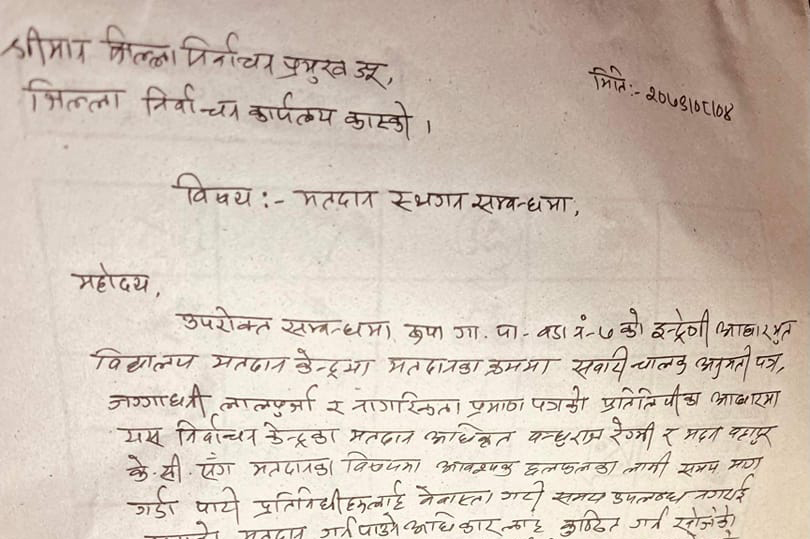 श्रीमान जिल्ला निर्वाचन प्रमुख ज्यू,
मिति:- २०७९।०८।०४
जिल्ला निर्वाचन कार्यलय कास्की ।
विषय:- मतदान स्थगन सम्बन्धमा,
महोदय,
उपरोक्त सम्बन्धमा रुपा गा. पा- वडा नं-७ को इन्द्रेणी आधारभुत
विद्यालय मतदान केन्द्रमा मतदानका क्रममा सवारी चालक अनुमती पत्र,
जग्गाधनी लालपुर्जा र नागरिकता प्रमाण पत्रको प्रतिलिपीका आधारमा
यस निर्वाचन केन्द्रका मतदान अधिकृत बन्धुराम रेग्मी र मदन बहादुर
के. सी. संग मतदानका विषयमा आवश्यक छलफलका लागी समय माग
गर्दा पार्टी प्रतिनिधीहरुलाई वेवास्ता गर्दै समय उपलब्ध नगराई
मतदान गर्न पाउने अधिकार लाई कुण्ठित गर्न खोजेको